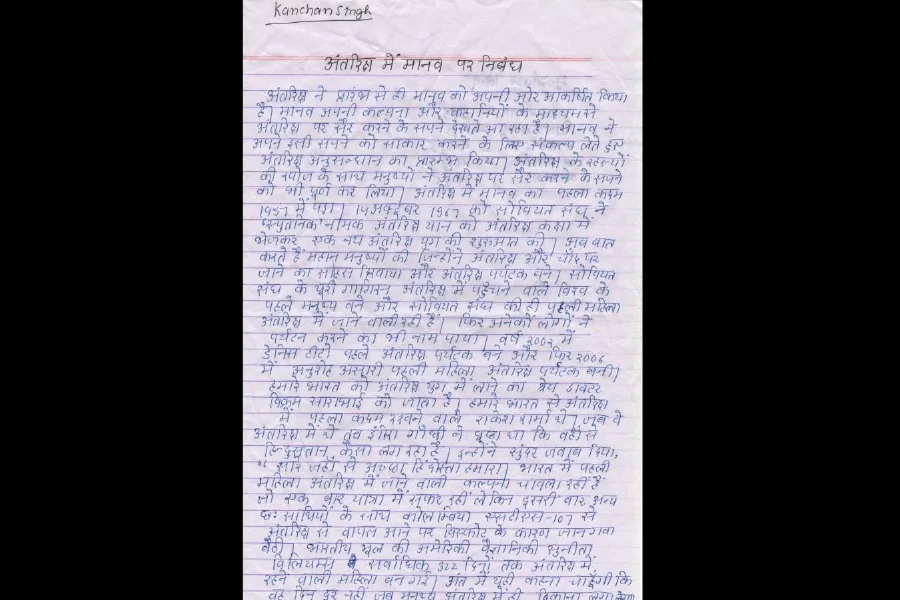 Kanchan Singh
अंतरिक्ष में मानव पर निबंध
अंतरिक्ष ने प्रारंभ से ही मानव को अपनी और आकर्षित किया
है। मानव अपनी कल्पना और कहानियों के माध्यम से
अंतरिक्ष पर सैर करने के सपने देखते आ रहा है। मानव ने
अपने इसी सपने को साकार करने के लिए संकल्प लेते हुए
अंतरिक्ष अनुसन्धान का प्रारम्भ किया। अंतरिक्ष के रहस्यों
की खोज के साथ मनुष्यों ने अंतरिक्ष पर सैर करने के सपने
को भी पूर्ण कर लिया। अंतरिक्ष में मानव का पहला कदम
1957 में पड़ा। 14 अक्टूबर 1967 को सोवियत संघ ने
स्पुतनिक नामक अंतरिक्ष यान को अंतरिक्ष कक्षा में
भेजकर एक नय अंतरिक्ष युग की शुरुआत की। अब बात
करते हैं महान मनुष्यों की जिन्होंने अंतरिक्ष और चाँद पर
जाने का साहस दिखाया और अंतरिक्ष पर्यटक बने। सोवियत
संघ के यूरी गागरिन अंतरिक्ष में पहुँचने वाले विश्व के
पहले मनुष्य बने और सोवियत संघ की ही पहली महिला
अंतरिक्ष में जाने वाली रही है। फिर अनेकों लोगों ने
पर्यटन करने का भी नाम पाया। वर्ष 2002 में
डेनिस टीटो पहले अंतरिक्ष पर्यटक बने और फिर 2006
में अनुशेह अंसारी पहली महिला अंतरिक्ष पर्यटक बनी।
हमारे भारत को अंतरिक्ष युग में लाने का श्रेय डाक्टर
विक्रम साराभाई को जाता है। हमारे भारत से अंतरिक्ष
में पहला कदम रखने वाले राकेश शर्मा थे। जब वे
अंतरिक्ष में थे तब इंदिरा गाँधी ने पूछा था कि वहाँ से
हिन्दुस्तान कैसा लग रहा है। इन्होंने सुंदर जवाब दिया,
" सारे जहाँ से अच्छा हिंदोस्ता हमारा। भारत में पहली
महिला अंतरिक्ष में जाने वाली कल्पना चावला रहीं हैं
जो एक बार यात्रा में सफल रहीं लेकिन दूसरी बार अन्य
छः साथियों के साथ कोलम्बिया एसटीएस-107 से
अंतरिक्ष से वापस आने पर विस्फोट के कारण जान गवा
बैठी। भारतीय मूल की अमेरिकी वैज्ञानिकी सुनीता
विलियमस सर्वाधिक 322 दिनों तक अंतरिक्ष में
रहने वाली महिला बन गई। अंत में यही कहना चाहूँगी कि
वह दिन दूर नहीं जब मनुष्य अंतरिक्ष में ही ठिकाना